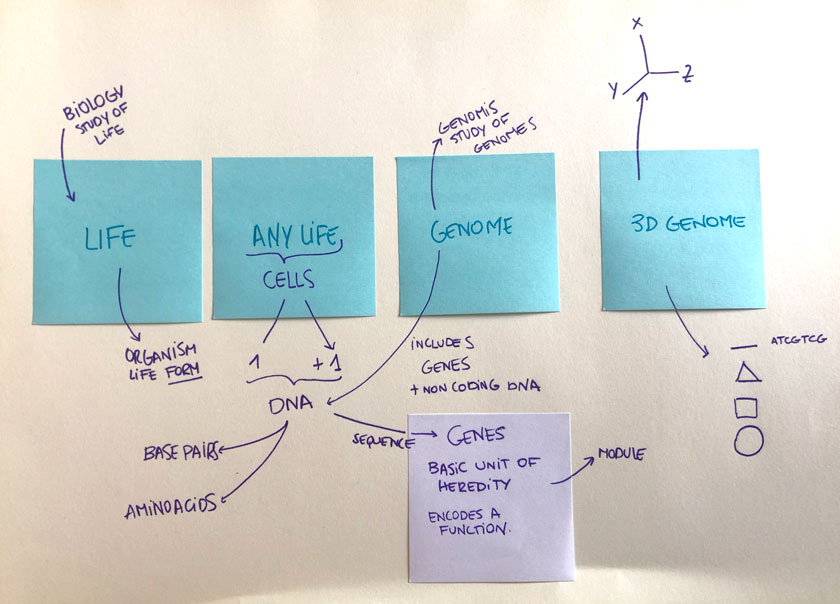 BIOLOGY
STUDY OF
LIFE
LIFE
ORGANISM
LIFE FORM
ANY LIFE
CELLS
1
+1
DNA
BASE PAIRS
AMINOACIDS
GENOMIS
STUDY OF
GENOMES
GENOME
INCLUDES
GENES
+ NON CODING DNA
SEQUENCE
GENES
BASIC UNIT OF
HEREDITY
ENCODES A
FUNCTION.
MODULE
X
Y
Z
3D GENOME
ATCGTCG